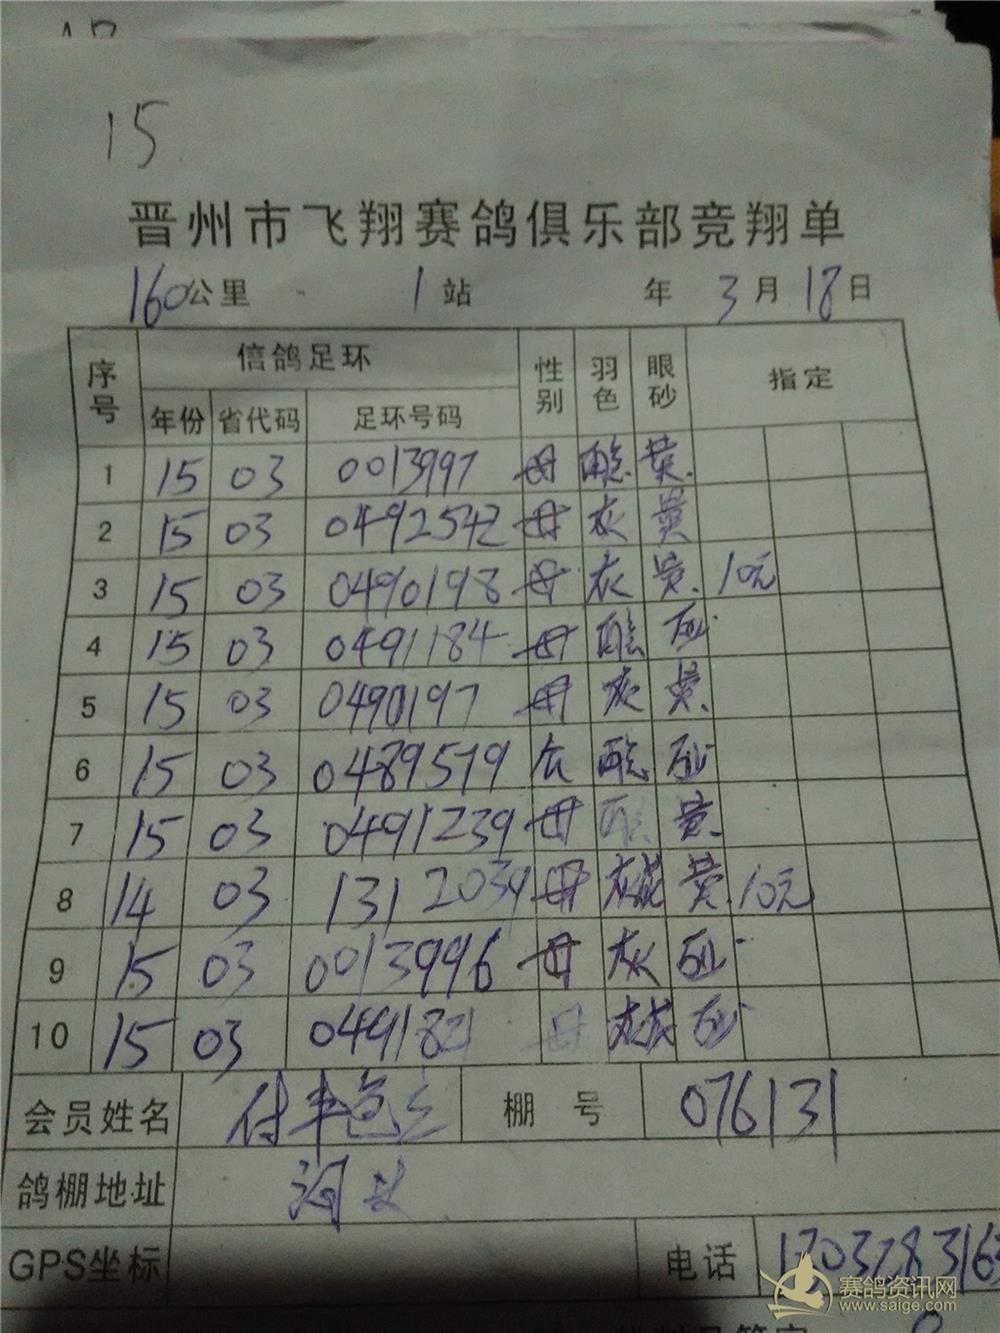 15
晋州市飞翔赛鸽俱乐部竞翔单
160公里 1站 年3月18日
序号 信鸽足环 性别 羽色 眼砂 指定
年份 省代码 足环号码
1 15 03 0013997 母 黄
2 15 03 0492542 母 灰 黄
3 15 03 0490198 母 灰 黄 10元
4 15 03 0491184 母 砂
5 15 03 0490197 母 灰 黄
6 15 03 0489579 砂
7 15 03 0491239 母 黄
8 14 03 1312034 母 灰 黄 10元
9 15 03 0013996 母 灰 砂
10 15 03 母 砂
会员姓名 付 棚号 076131
鸽棚地址
GPS坐标 电话
赛鸽资讯网
www.saige.com